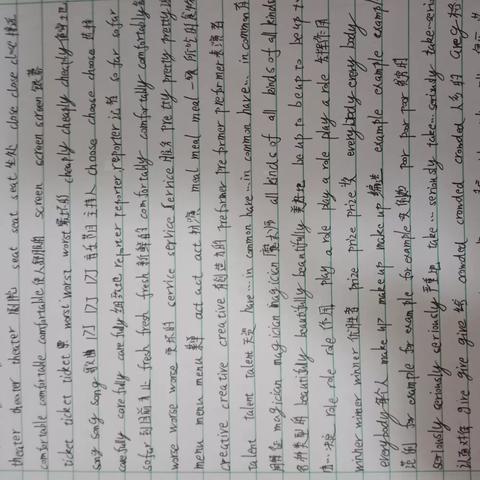 theater theater theater 剧院 seat seat seat 坐处 close close close 接近
comfortable comfortable 使人舒服的 screen screen screen 银幕
ticket ticket ticket 票 worst worst worst 最坏的 cheaply cheaply cheaply 便宜地
song song song 歌曲 DJ DJ DJ 音乐节目主持人 choose choose choose 选择
carefully carefully carefully 细致地 reporter reporter reporter 记者 so far so far
so far 到目前为止 fresh fresh fresh 新鲜的 comfortably comfortably comfortably
worse worse worse 更坏的 service service service 服务 pretty pretty pretty
menu menu menu 菜单 act act act 扮演 meal meal meal 一餐所吃的食物
creative creative creative 有创造力的 preformer preformer preformer 表演者
talent talent talent 天赋 have...in common have...in common have...in common 有
magician magician magician 魔术师 all kinds of all kinds of all kinds
各种类型的 beautifully beautifully beautifully 美好地 be up to be up to be up to
由…决定 role role role 作用 play a role play a role play a role 发挥作用
winner winner winner 优胜者 prize prize prize 奖 everybody everybody
everybody 每个人 make up make up make up 编造 example example example
范例 for example for example for example 例如 poor poor poor 贫穷的
seriously seriously seriously 严重地 take...seriously take...seriously take...seriously
认真对待 give give give 给 crowded crowded crowded 人多的